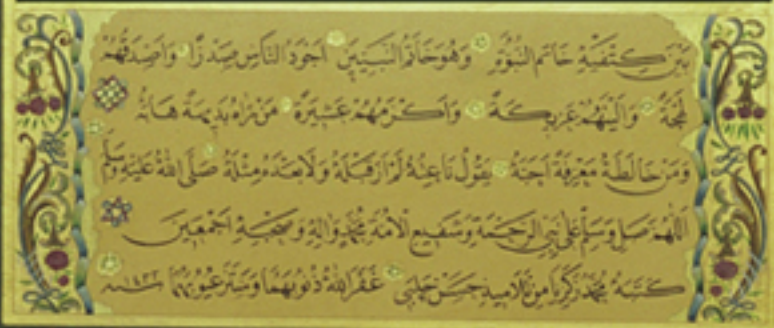 بَيْنَ كِتْفَيْهِ خَاتَمُ النُّبُوَّةِ وَهُوَ خَاتَمُ النَّبِيِّينَ اَجْوَدُ النَّاسِ صَدْرًا وَاَصْدَقُهُمْ
لَهْجَةً وَاَلْيَنُهُمْ عَرِيكَةً وَاَكْرَمُهُمْ عَشِيرَةً مَنْ رَاٰهُ بَدِيهَةً هَابَهُ
وَمَنْ خَالَطَهُ مَعْرِفَةً اَحَبَّهُ يَقُولُ نَاعِتُهُ لَمْ اَرَ قَبْلَهُ وَلَا بَعْدَهُ مِثْلَهُ صَلَّى اللّٰهُ عَلَيْهِ وَسَلَّمَ
اَللّٰهُمَّ صَلِّ وَسَلِّمْ عَلٰى نَبِيِّ الرَّحْمَةِ وَشَفِيعِ الْاُمَّةِ مُحَمَّدٍ وَاٰلِهِ وَصَحْبِهِ اَجْمَعِينَ
كَتَبَهُ مُحَمَّد زَكَرِيَّا مِنْ تَلَامِيذِ حَسَن چَلَبِي غَفَرَ اللّٰهُ ذُنُوبَهُمَا وَسَتَرَ عُيُوبَهُمَا